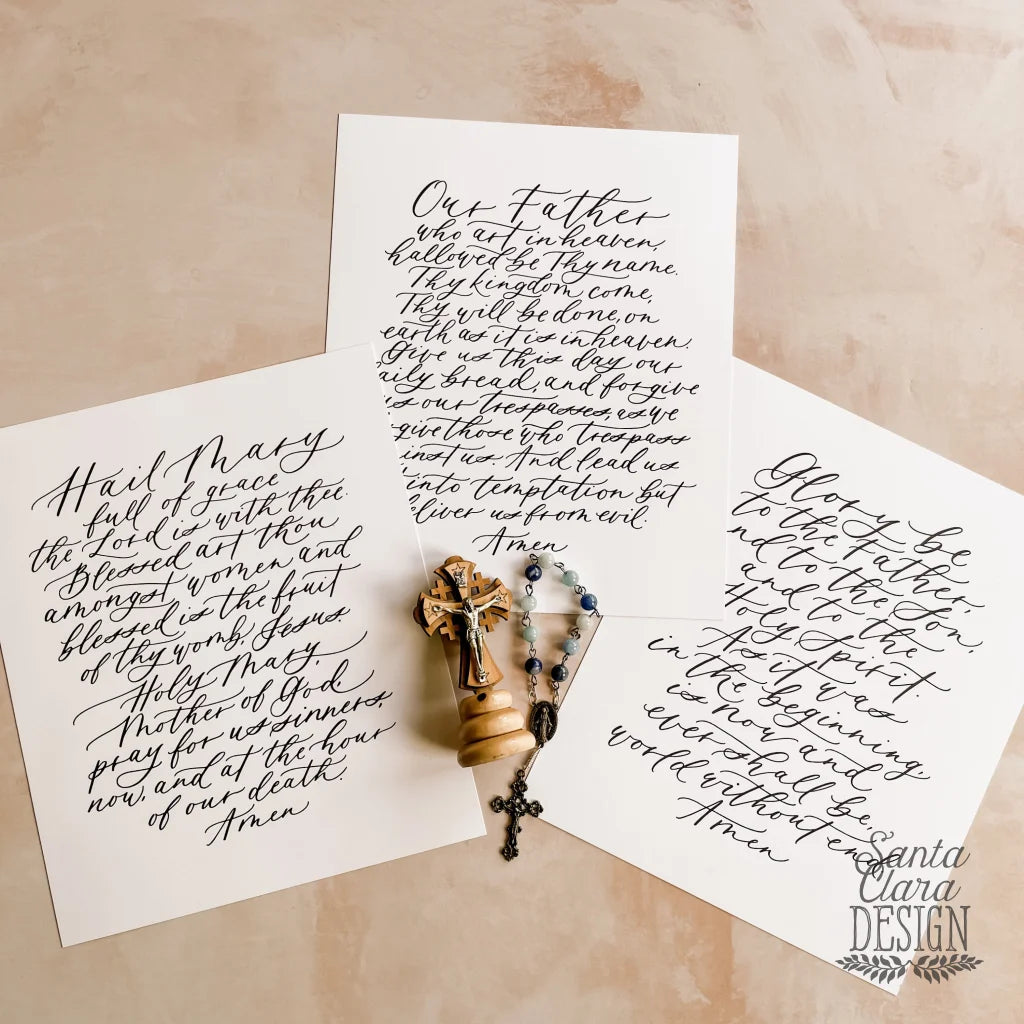 Our Father
who art in heaven,
hallowed be Thy name.
Thy kingdom come,
Thy will be done, on
earth as it is in heaven.
Give us this day our
aily bread, and forgive
us our trespasses, as we
give those who trespass
inst us. And lead us
into temptation but
eliver us from evil.
Amen
Hail Mary
full of grace
the Lord is with thee.
Blessed art thou
amongst women and
blessed is the fruit
of thy womb, Jesus.
Holy Mary,
Mother of God,
pray for us sinners,
now, and at the hour
of our death.
Amen
Glory be
to the Father,
nd to the Son,
and to the
Holy Spirit.
As it was
in the beginning,
is now and
ever shall be,
world without end
Amen
Santa
Clara
DESIGN